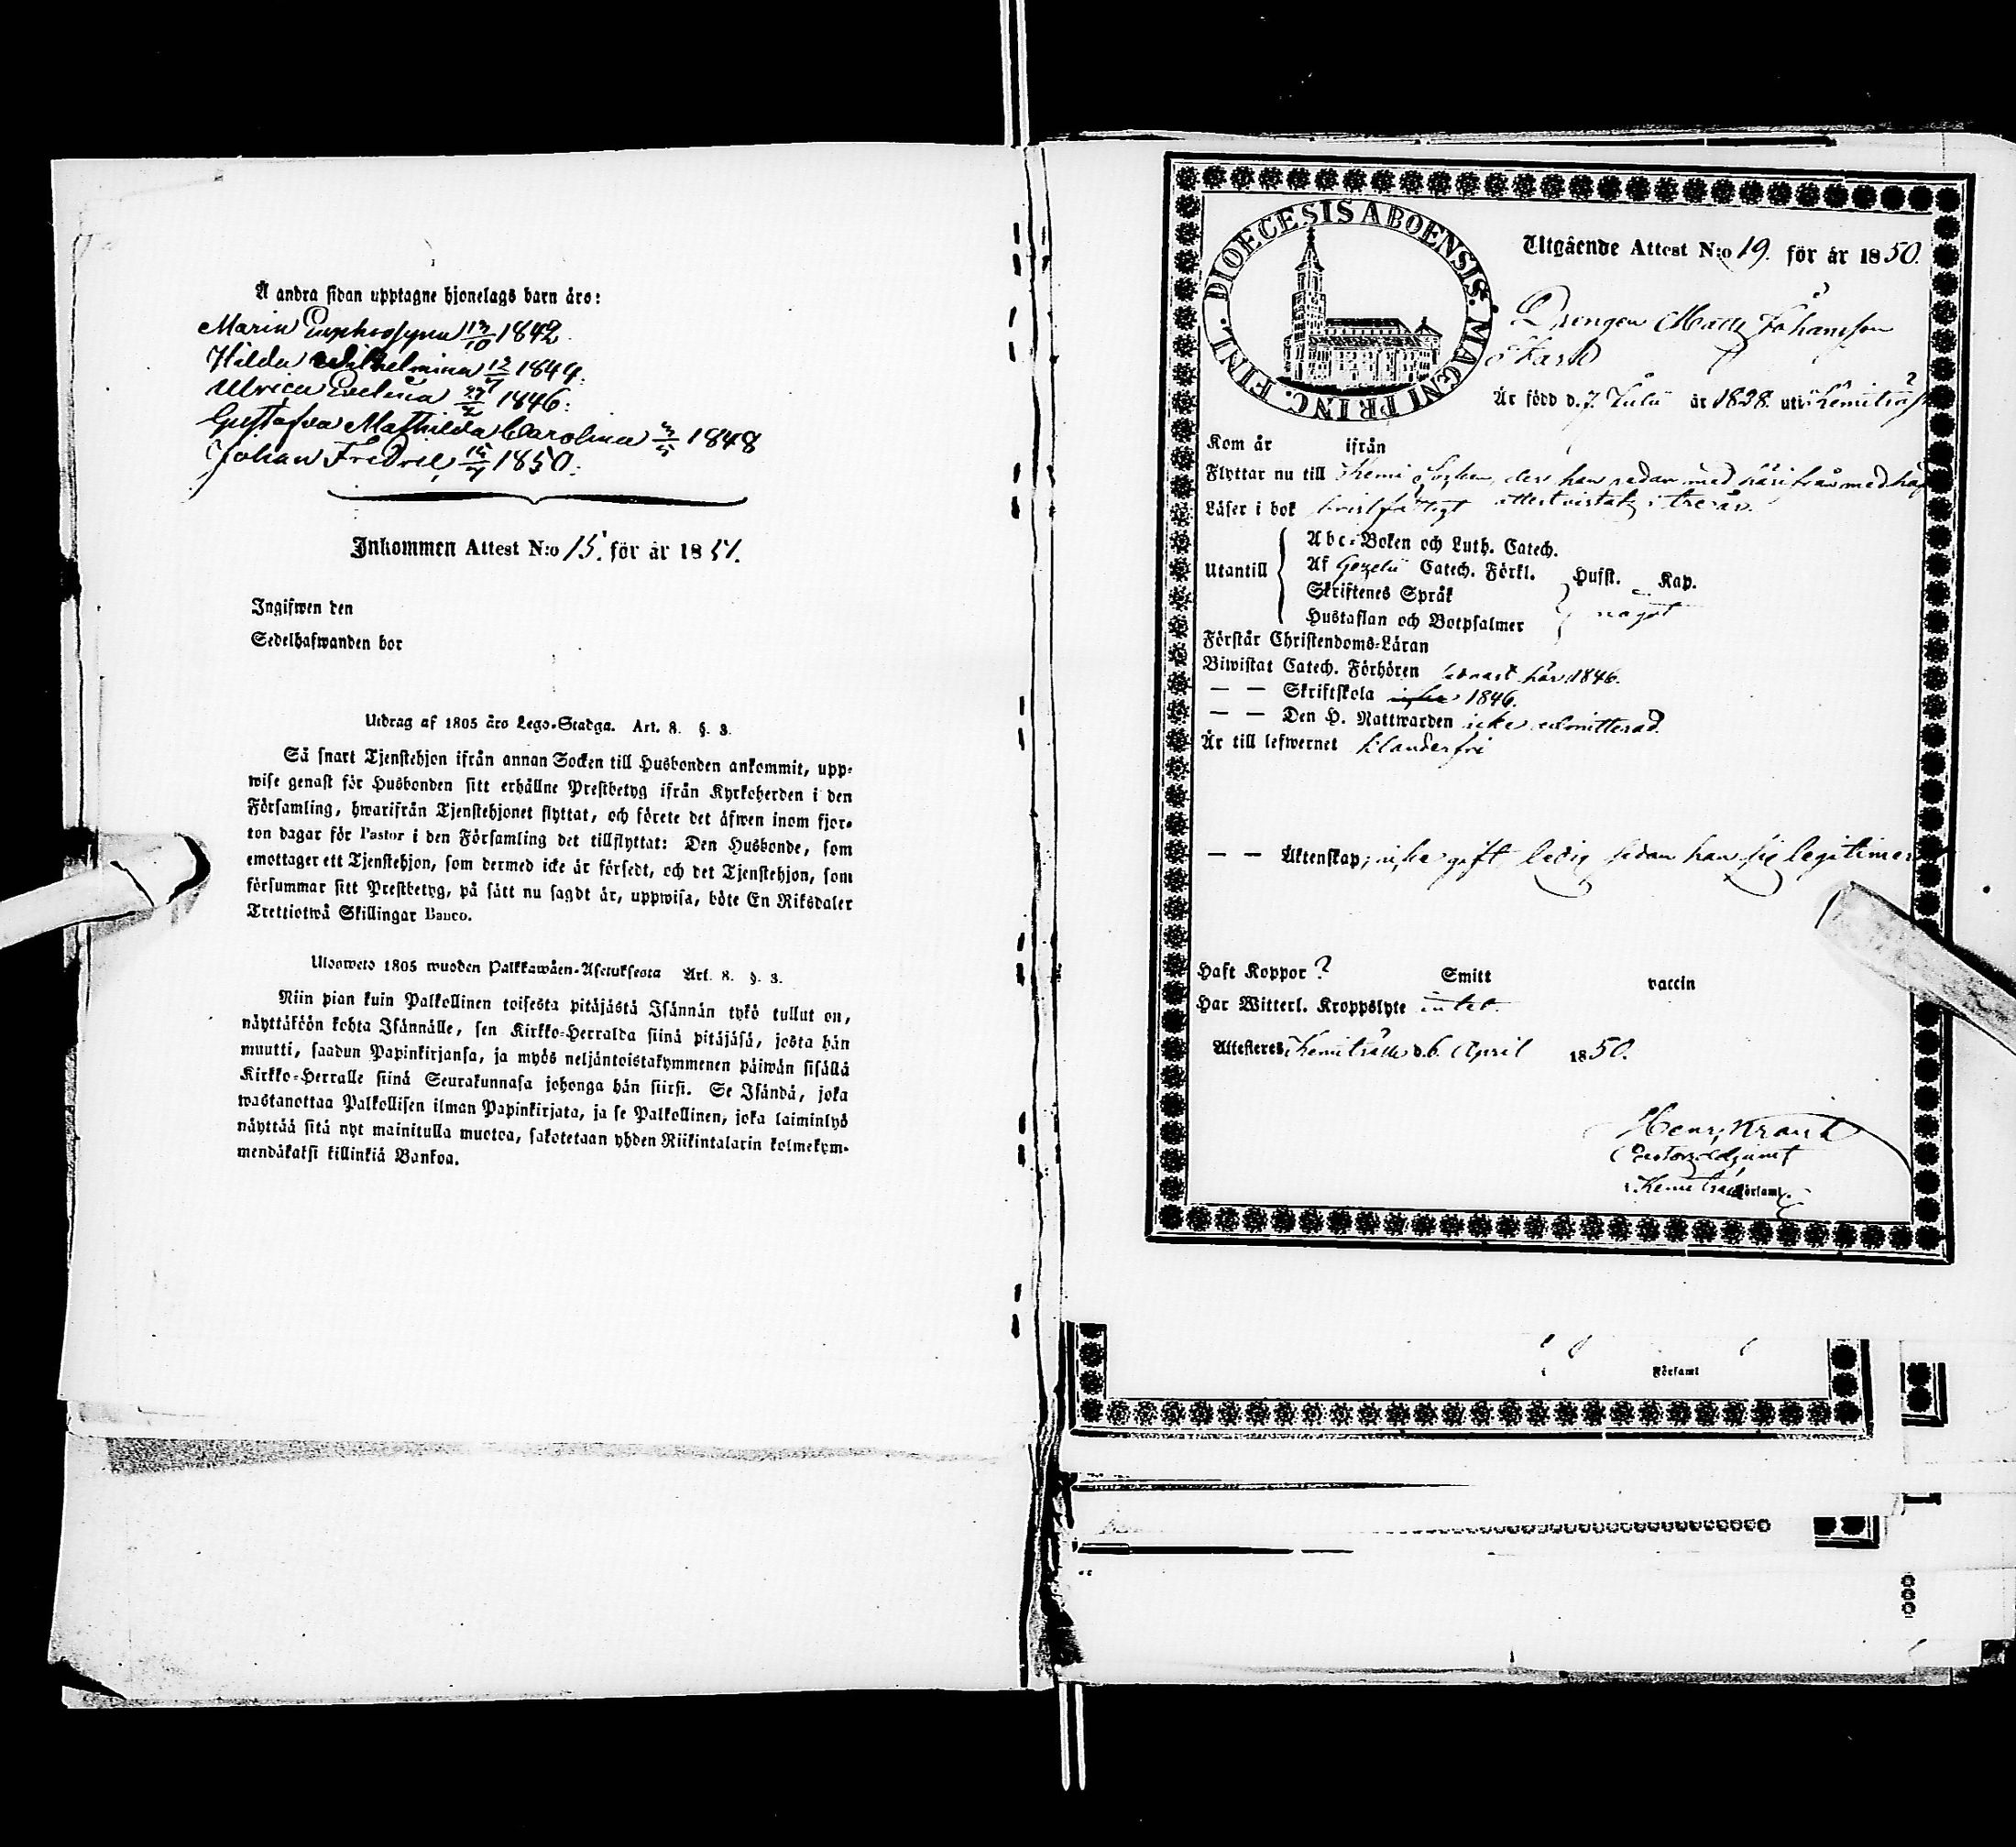 Å andra sidan upptagne hjonelags barn äro:
Maria Euphrosyna 13/10 1842.
Hilda Wilhelmina 12/7 1844.
Ulrica Evelina 27/2 1846:
Gustafva Mathilda Carolina 3/5 1848
Johan Fredric 1850.
Inkommen Attest N:o 15. för år 1851.
Ingifwen den
Sedelhafwanden bor
Utdrag af 1805 års Lego-Stadga. Art. 8. §. 3.
Så snart Tjenstehjon ifrån annan Socken till Husbonden ankommit, upp-
wise genast för Husbonden sitt erhållne Prestbetyg ifrån Kyrkoherden i den
Församling, hwarifrån Tjenstehjonet flyttat, och förete det äfwen inom fjor-
ton dagar för Pastor i den Församling det tillflyttat: Den Husbonde, som
emottager ett Tjenstehjon, som dermed icke är försedt, och det Tjenstehjon, som
försummar sitt Prestbetyg, på sätt nu sagdt är, uppwisa, böte En Riksdaler
Trettiotwå Skillingar Banco.
Ulosweto 1805 wuoden Palkkawäen-Asetuksesta Art. 8. §. 3.
Niin pian kuin Palkollinen toisesta pitäjästä Isännän tykö tullut on,
näyttäköön kohta Isännälle, sen Kirkko-Herralda siinä pitäjäsä, josta hän
muutti, saadun Papinkirjansa, ja myös neljäntoistakymmenen päiwän sisällä
Kirkko-Herralle siinä Seurakunnasa johonga hän siirsi. Se Isändä, joka
wastanottaa Palkollisen ilman Papinkirjata, ja se Palkollinen, joka laiminlyö
näyttää sitä nyt mainitulla muotoa, sakotetaan yhden Riikintalarin kolmekym-
mendäkaksi killinkiä Bankoa.
DIOECESIS ABOENSIS. MAGNI PRINC. FINL.
Utgående Attest N:o 19. för år 1850.
Drengen Matts Johansson
Kark
Är född d. 7 Julii år 1828. uti Kemiträsk
Kom år ifrån
Flyttar nu till Kemi Socken, der han redan med härifrån med haf
Läser i bok bristfälligt attest vistats i tre år.
Utantill
Abc-Boken och Luth. Catech.
Af Gezelii Catech. Förkl. Hufst. Kap.
Skriftenes Språk
Hustaflan och Botpsalmer något
Förstår Christendoms-Läran
Biwistat Catech. Förhören senast här 1846.
— — Skriftskola 1846.
— — Den H. Nattwarden icke admitterad.
Är till lefwernet klanderfri
— — Äktenskap; icke gift ledig sedan han sig legitimer
Haft Koppor ? Smitt vaccin
Har Witterl. Kroppslyte intet.
Attesteres Kemiträsk d. 6 April 1850.
Henr.
Pastors Adjunct
i Kemiträsk Församl.
Församl